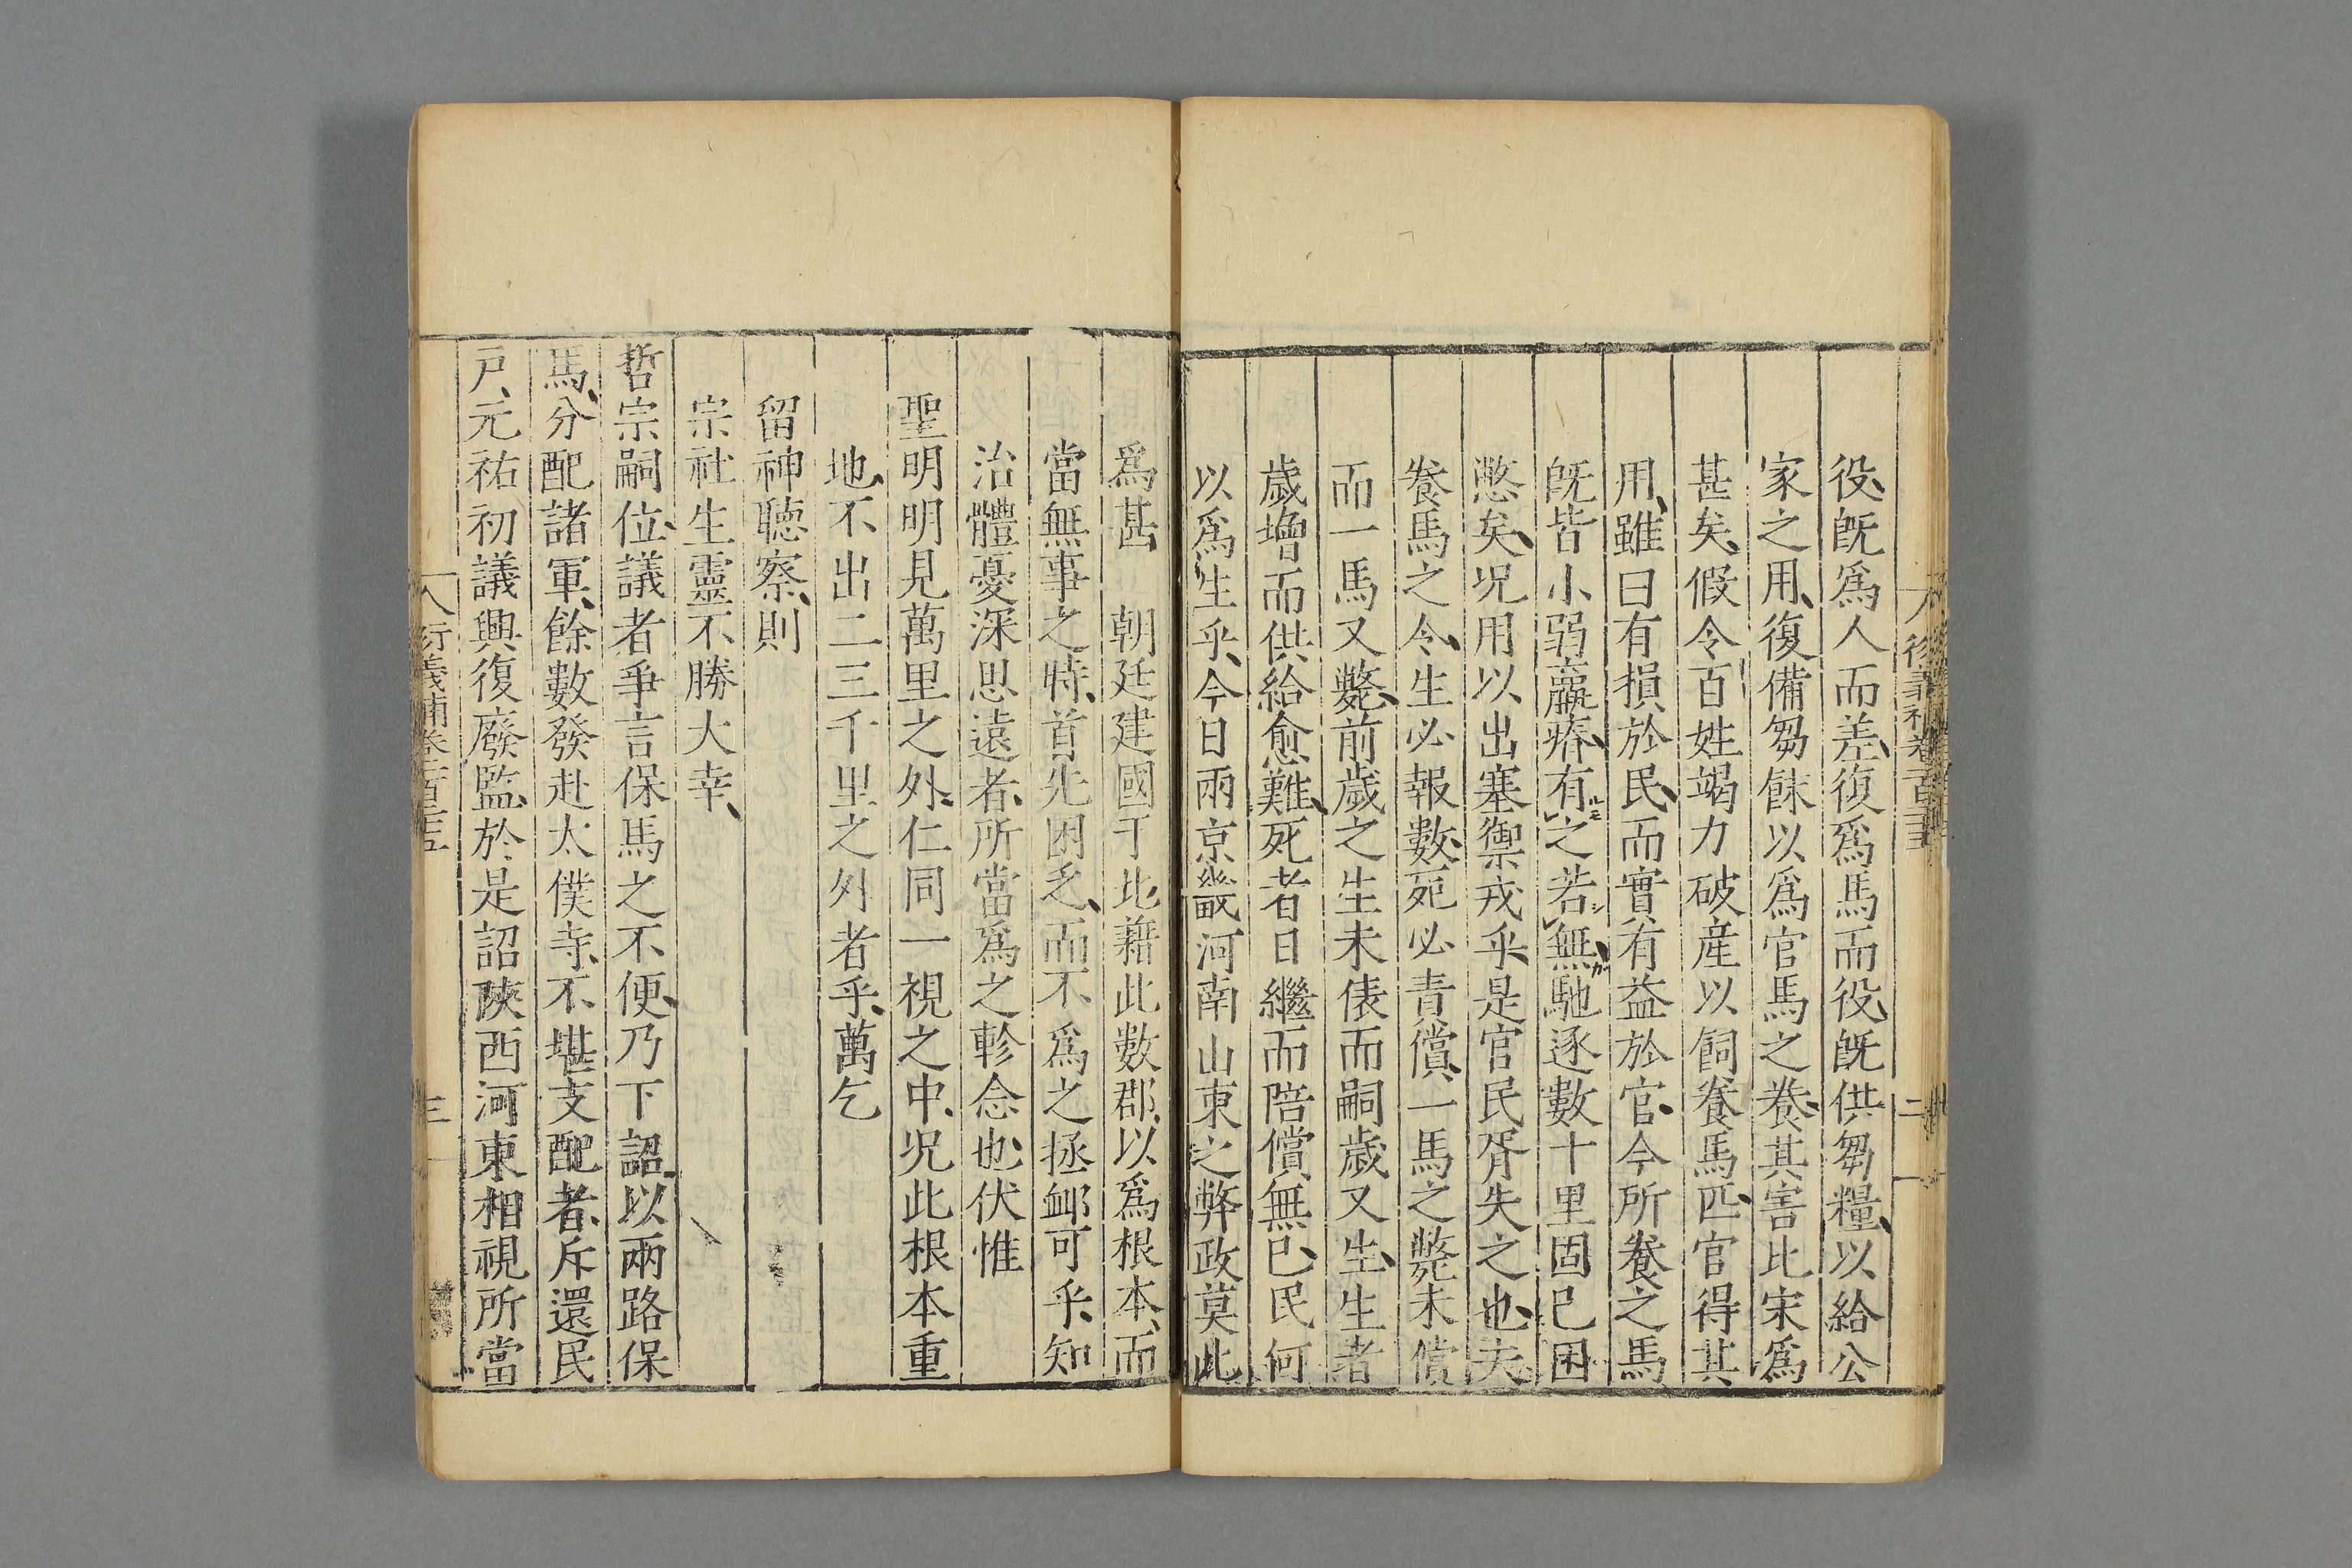 役、既爲人而差、復爲馬而役、既供芻糧、以給公
家之用、復備芻餗以爲官馬之養、其害比宋爲
甚矣、假令百姓竭力破產以飼養馬匹、官得其
用、雖曰有損於民、而實有益於官、今所養之馬
既皆小弱羸瘠、有之若無、馳逐數十里固已困
憋矣、況用以出塞禦戎乎、是官民胥失之也、夫
養馬之令、生必報數、死必責償、一馬之斃未償
而一馬又斃、前歲之生未俵而嗣歲又生、生者
歲增而供給愈難、死者日繼而陪償無已、民何
以爲生乎、今日兩京畿河南山東之弊政莫此
爲甚　朝廷建國于北藉此數郡、以爲根本、而
當無事之時、首先困乏、而不爲之拯卹可乎、知
治體憂深思遠者、所當爲之軫念也、伏惟
聖明明見萬里之外、仁同一視之中、況此根本重
地、不出二三千里之外者乎、萬乞
留神聽察、則
宗社生靈不勝大幸、
哲宗嗣位、議者爭言保馬之不便、乃下詔、以兩路保
馬、分配諸軍、餘數發赴太僕寺、不堪支配者、斥還民
戸、元祐初議興復廢監、於是詔陝西河東相視所當